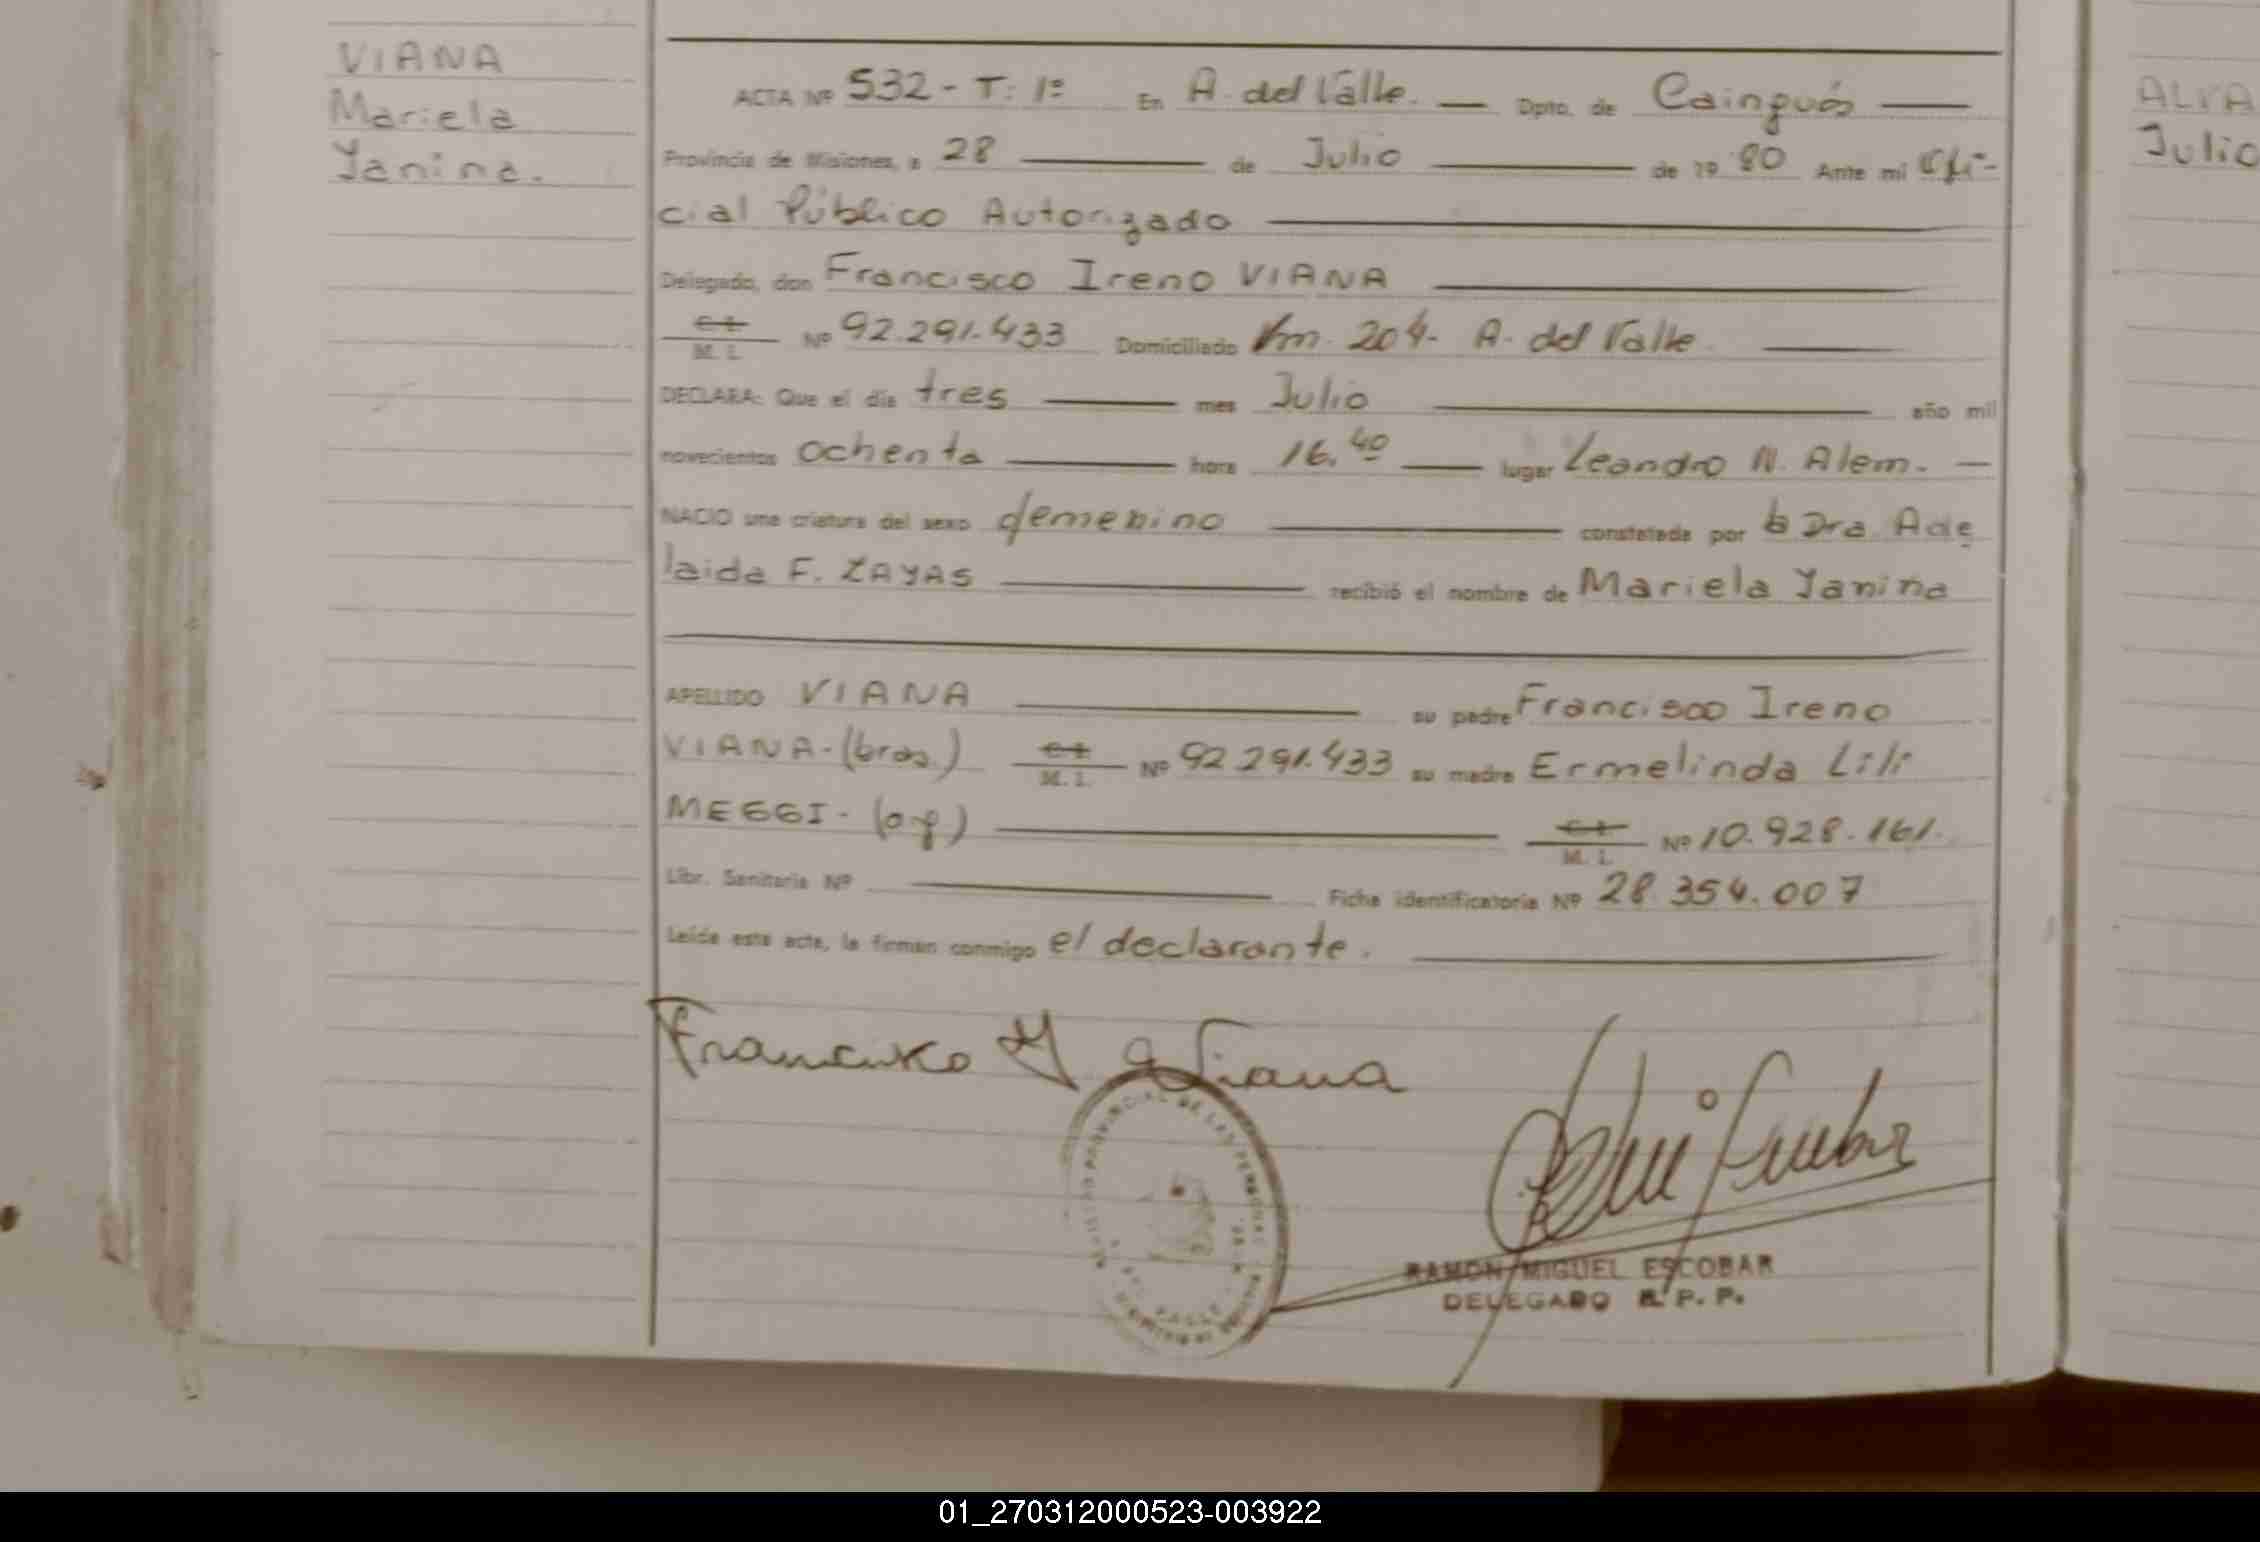 VIANA
Mariela
Yanina.
ACTA Nº 532 - T: 1º En A. del Valle. — Dpto. de Cainguás —
Provincia de Misiones, a 28 — de Julio — de 19 80 Ante mí Ofi-
cial Público Autorizado —
Delegado, don Francisco Ireno VIANA —
M. I. Nº 92.291.433 Domiciliado Km. 204- A. del Valle. —
DECLARA: Que el día tres — mes Julio — año mil
novecientos ochenta — hora 16.40 — lugar Leandro N. Alem. —
NACIO una criatura del sexo femenino — constatada por la Dra. Ade
laida F. ZAYAS — recibió el nombre de Mariela Yanina
APELLIDO VIANA — su padre Francisco Ireno
VIANA-(bras.) M. I. Nº 92.291.433 su madre Ermelinda Lili
(arg) — M. I. Nº 10.928.161.
Libr. Sanitaria Nº — Ficha identificatoria Nº 28.354.007
Leída esta acta, la firman conmigo el declarante. —
Francisco Viana
RAMON MIGUEL ESCOBAR
DELEGADO R. P. P.
ALVA
Julio
01_270312000523-003922